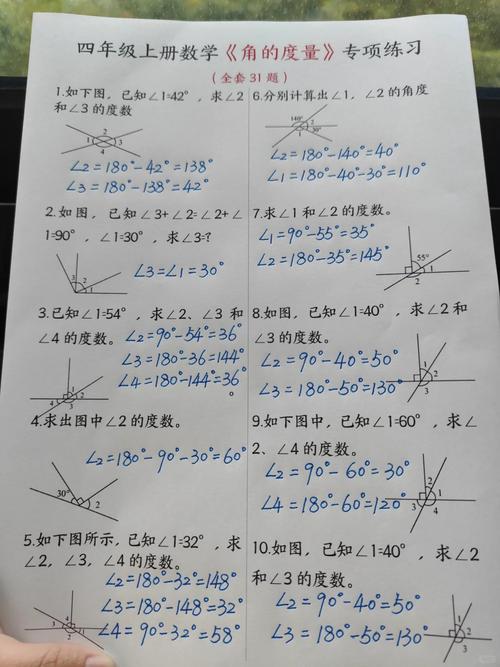 四年级上册数学《角的度量》专项练习
(全套31题)
1.如下图，已知∠1=42°，求∠2
和∠3的度数
2
1 3
4
∠2=180°-42°=138°
∠3=180°-138°=42°
2.如图，已知∠3+∠2=∠2+∠
1=90°，∠1=30°，求∠3=?
3 2
1
∠3=∠1=30°
3.已知∠1=54°，求∠2、∠3 和
∠4的度数。
∠2=90°-54°=36°
∠3=180°-36=144°
∠4=180°-144°=36°
1
2
4
3
4.求出图中∠2的度数。
∠2=180°-90°-30°=60°
30°
2
5.如下图所示，已知∠1=32°，求
∠2，∠3，∠4的度数。
∠2=180°-32°=148°
∠3=180°-148°=32°
∠4=90°-32°=58°
4
3 1
2
6.分别计算出∠1，∠2的角度
140° 2
1 30°
∠2=180°-140°=40°
∠1=180°-40°-30°=110°
7.求∠1和∠2的度数。
∠1=90°-55°=35°
∠2=180°-35°=145°
55°
1
2
8.如图，已知∠1=40°，求∠2和
∠3的度数。
∠2=90°-40°=50°
∠3=180°-50°=130°
1
2
3
9.如下图中，已知∠1=60°，求∠
2、∠4的度数。
∠2=90°-60°=30°
∠4=180°-60°=120°
2
1
3 4
10.如图，已知∠1=40°，求∠2
和∠3的度数。
∠2=90°-40°=50°
∠3=180°-50°=130°
1
2
3